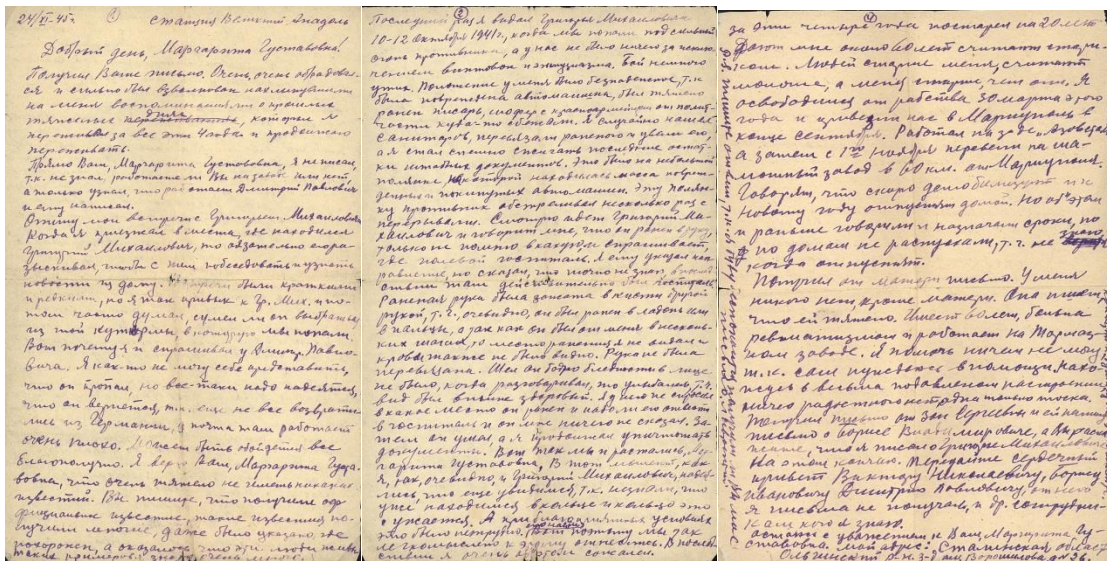 24/XI-45г. ① Станция Великий Анадоль
Добрый день, Маргарита Густавовна!
Получил Ваше письмо. Очень, очень обрадовал-
ся и сильно был взволнован нахлынувшими
на меня воспоминаниями о прошлых
тяжелых днях, которые я
переживал за все эти 4 года и продолжаю
переживать.
Прямо Вам, Маргарита Густавовна, я не писал,
т.к. не знал, работаете ли Вы на заводе или нет,
а только узнал, что работает Дмитрий Павлович
и ему написал.
Опишу мои встречи с Григорием Михайловичем
Когда я приезжал в места, где находился
Григорий Михайлович, то обязательно его ра-
зыскивал, чтобы с ним побеседовать и узнать
новости из дому. Встречи были краткими
и редкими, но я так привык к Гр. Мих., и по-
том часто думал, сумел ли он выбраться
из той кутерьмы, в которую мы попали.
Вот почему я и спрашивал у Дмитр. Павло-
вича. Я как-то не могу себе представить,
что он пропал, но все-таки надо надеяться,
что он вернется, т.к. еще не все возврати-
лись из Германии, а почта там работает
очень плохо. Может быть обойдется все
благополучно. Я верю Вам, Маргарита Густа-
вовна, что очень тяжело не иметь никаких
известий. Вы пишете, что получили оф-
фициальное известие, такие известия по-
лучили многие, даже было указано, где
похоронен, а оказалось что эти люди живы
таких примеров
②
Последний раз я видел Григория Михайловича
10-12 октября 1941 г., когда мы попали под сильный
огонь противника, а у нас не было ничего за исклю-
чением винтовок и энтузиазма. Бой немного
утих. Положение у меня было безнадежное, т.к.
была повреждена автомашина, был тяжело
ранен писарь, шофер с красноармейцем от полит-
части куда-то сбежали. Я случайно нашел
санитаров, перевязали раненого и увели его,
а я стал спешно сжигать последние остат-
ки штабных документов. Это было на небольшой
полянке на которой находилась масса повреж-
денных и покинутых автомашин. Эту полян-
ку противник обстреливал несколько раз с
перерывами. Смотрю идет Григорий Ми-
хайлович и говорит мне, что он ранен в руку,
только не помню в какую и спрашивает,
где полевой госпиталь. Я ему указал нап-
равление, но сказал, что точно не знал,
там действительно был госпиталь.
Раненая рука была зажата в кисти другой
рукой, т.ч., очевидно, он был ранен в ладонь или
в пальцы, а так как он был от меня в несколь-
ких шагах, то места ранения я не видал и
крови также не было видно. Рука не была
перевязана. Шел он бодро бледности в лице
не было, когда разговаривал, то улыбался, т.ч.
вид был вполне здоровый. Я у него не спросил
в какое место он ранен и надолго ли он
в госпиталь и он мне ничего не сказал. За-
тем он ушел, а я продолжал уничтожать
документы. Вот так мы и расстались, Мар-
гарита Густавовна. В тот момент как
я, так, очевидно и Григорий Михайлович, надея-
лись, что еще увидимся, т.к. не знали, что
уже находимся в кольце и кольцо это
сужается. А при благоприятных условиях
это было нетрудно, поэтому мы так
легкомысленно к этому отнеслись. В послед-
ствии я очень об этом сожалел.
④
за эти четыре года постарел на 20 лет
Дают мне около 60 лет считают стари-
ком. Людей старше меня, считают
моложе, а меня старше чем они. Я
освободился от рабства 30 марта этого
года и привезли нас в Мариуполь в
конце сентября. Работал на з-де "Азовсталь"
а затем с 1го ноября перевели на ша-
мотный завод в 60 км. от Мариуполя.
Говорят, что скоро демобилизуют и к
Новому году отпустят домой. Но об этом
и раньше говорили и назначали сроки, но
по домам не распускали, т.ч. не знаю,
когда отпустят.
Получил от матери письмо. У меня
никого нет, кроме матери. Она пишет,
что ей тяжело. Имеет 60 лет, больна
ревматизмом и работает на Тормоз-
ном заводе. Я помочь ничем не могу
т.к. сам нуждаюсь в помощи. Нахо-
жусь в весьма подавленном настроении
ничего радостного нет, одна только тоска.
Получил письмо от Зои Сергеевны и ей написал
письмо о Борисе Владимировиче, а Вы
что я писал о Григории Михайловиче.
На этом кончаю. Передайте сердечный
привет Виктору Николаевичу, Борису
Ивановичу, Дмитрию Павловичу, от него
я письма не получил, и др. сотрудни-
кам кого я знаю.
Остаюсь с уважением к Вам, Маргарита Гу-
ставовна. Мой адрес: Сталинская область
Ольгинский р-н. з-д им. Ворошилова